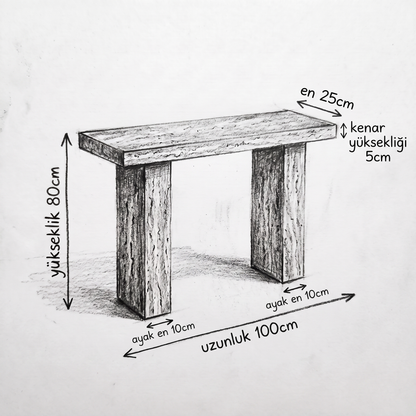 en 25cm
kenar
yüksekliği
5cm
yükseklik 80cm
ayak en 10cm
ayak en 10cm
uzunluk 100cm